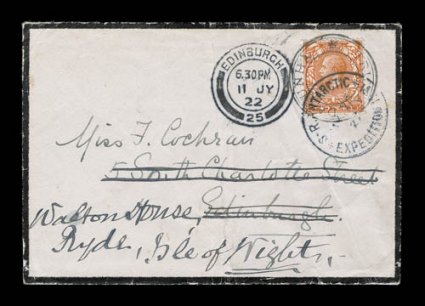 EDINBURGH
6.30PM
11 JY
22
25
S.R. ANTARCTIC
EXPEDITION
Miss F. Cochran
5 South Charlotte Street
Edinburgh.
Walton House,
Ryde, Isle of Wight.